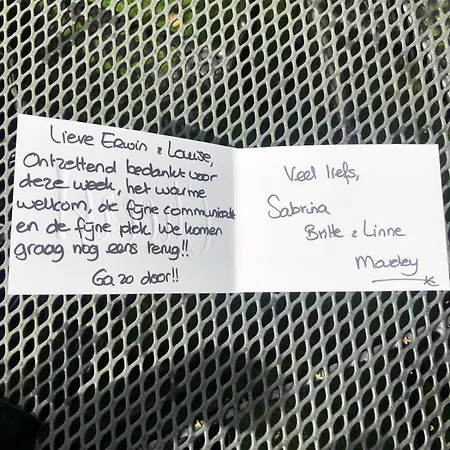 Lieve Erwin & Louise,
Ontzettend bedankt voor
deze week, het warme
welkom, de fijne communicatie
en de fijne plek. We komen
graag nog eens terug!!
Ga zo door!!
Veel liefs,
Sabrina
Britte & Linne